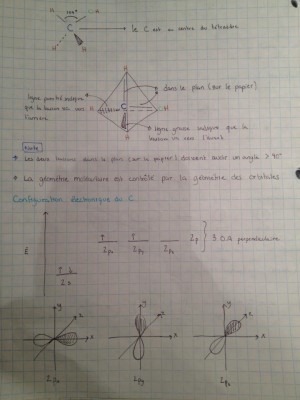 H
H
109°
C
→ le C est au centre du tétraèdre
H
H
H
dans le plan (sur le papier)
ligne pointillé indique
que la liaison est vers
l'arrière
C
H
H
H
ligne grasse indique que la
liaison est vers l'avant
Note
→ Les deux liaisons dans le plan (sur le papier) doivent avoir un angle > 90°
→ La géométrie moléculaire est contrôlé par la géométrie des orbitales
Configuration électronique du C
E
2px 2py 2pz } 3 O.A perpendiculaires
2s
y
z
x
2px
y
z
x
2py
y
z
x
2pz